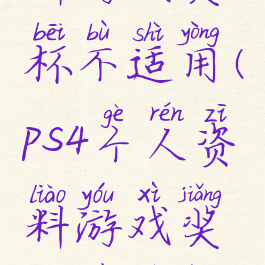 bēi bù shì yòng
杯不适用(
gè rén zī
PS4个人资
liào yóu xì jiǎng
料游戏奖